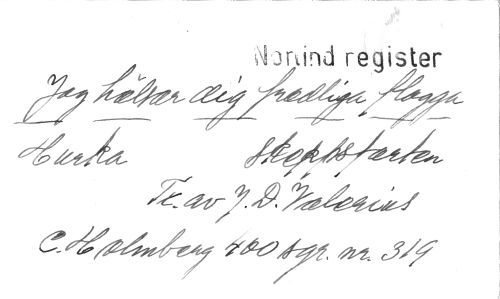 Norlind register
Jag hälsar dig fredliga flagga
Hurka Skeppsfarten
Tc. av J. D. Valerius
C. Holmberg 400 sgr. nr. 319